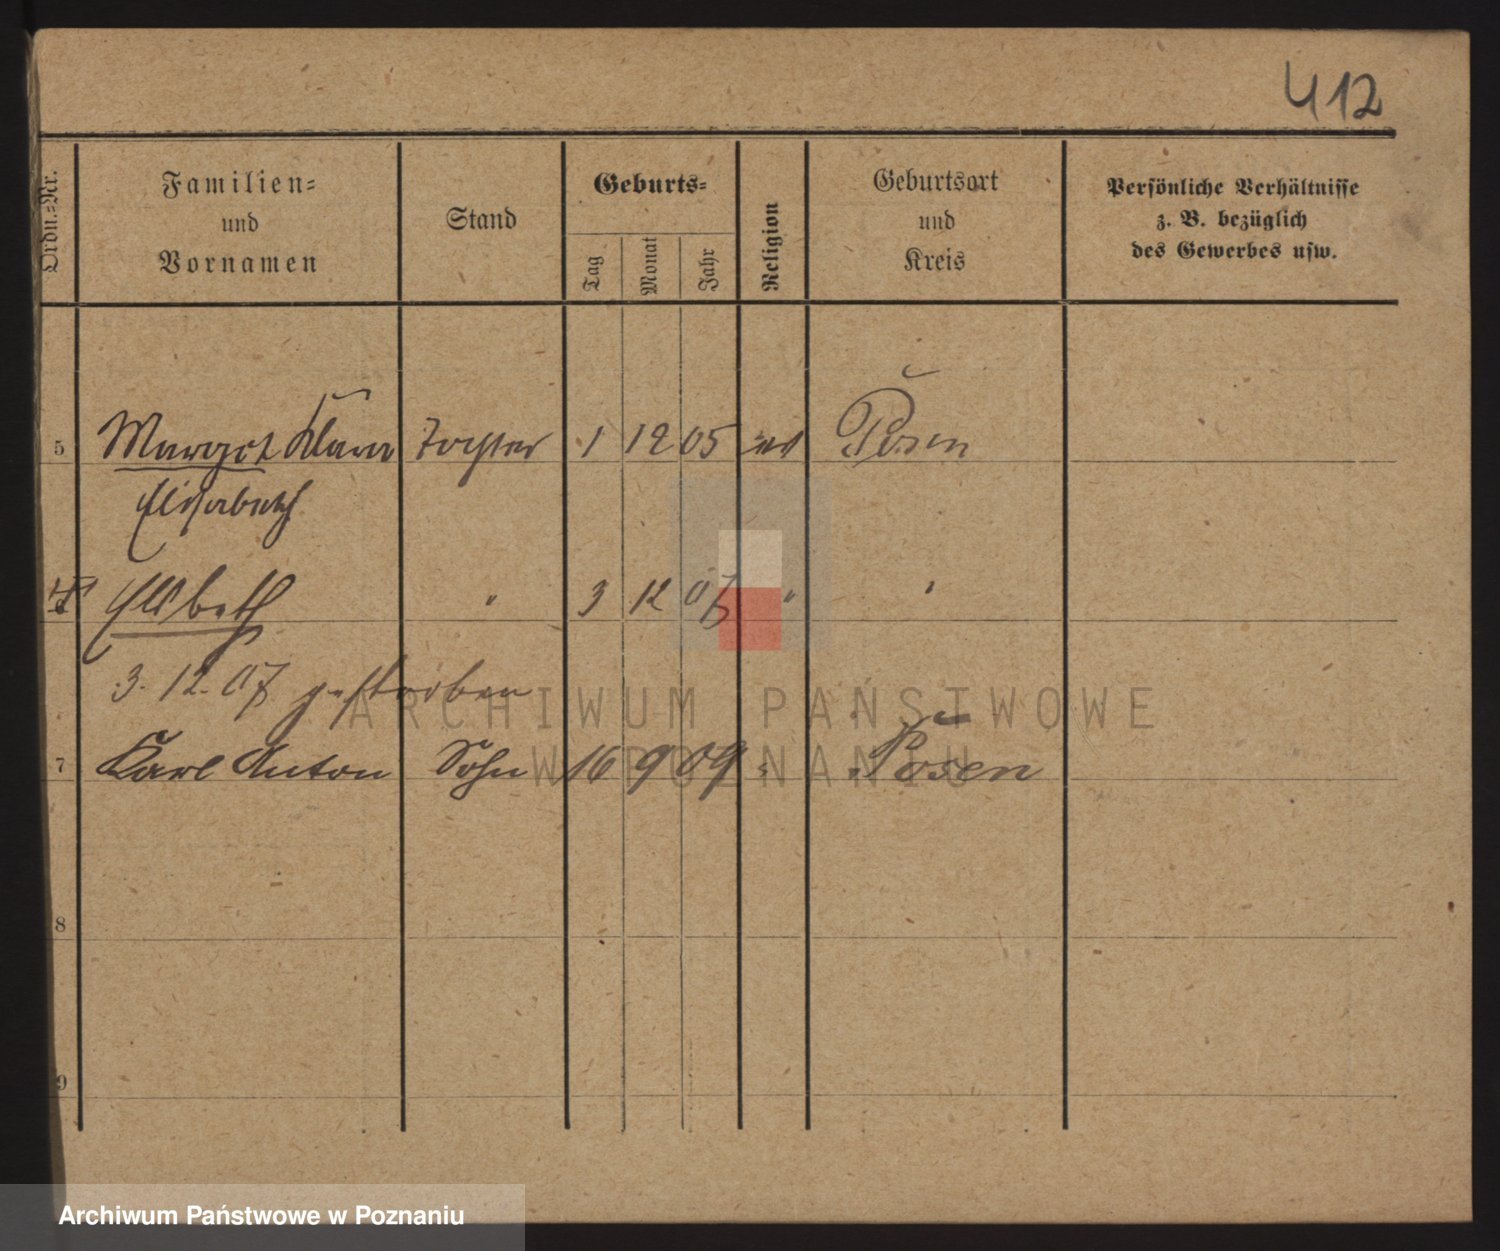 412
Ordn.-Nr.
Familien-
und
Vornamen
Stand
Geburts-
Tag
Monat
Jahr
Religion
Geburtsort
und
Kreis
Persönliche Verhältnisse
z. B. bezüglich
des Gewerbes usw.
5 Margot Klara Tochter 1 12 05 ev Posen
Elisabeth
Elsbeth " 3 12 07 " "
3. 12. 07 gestorben
7 Karl Anton Sohn 16 9 09 " Posen
8
9
ARCHIWUM PAŃSTWOWE
W POZNANIU
Archiwum Państwowe w Poznaniu